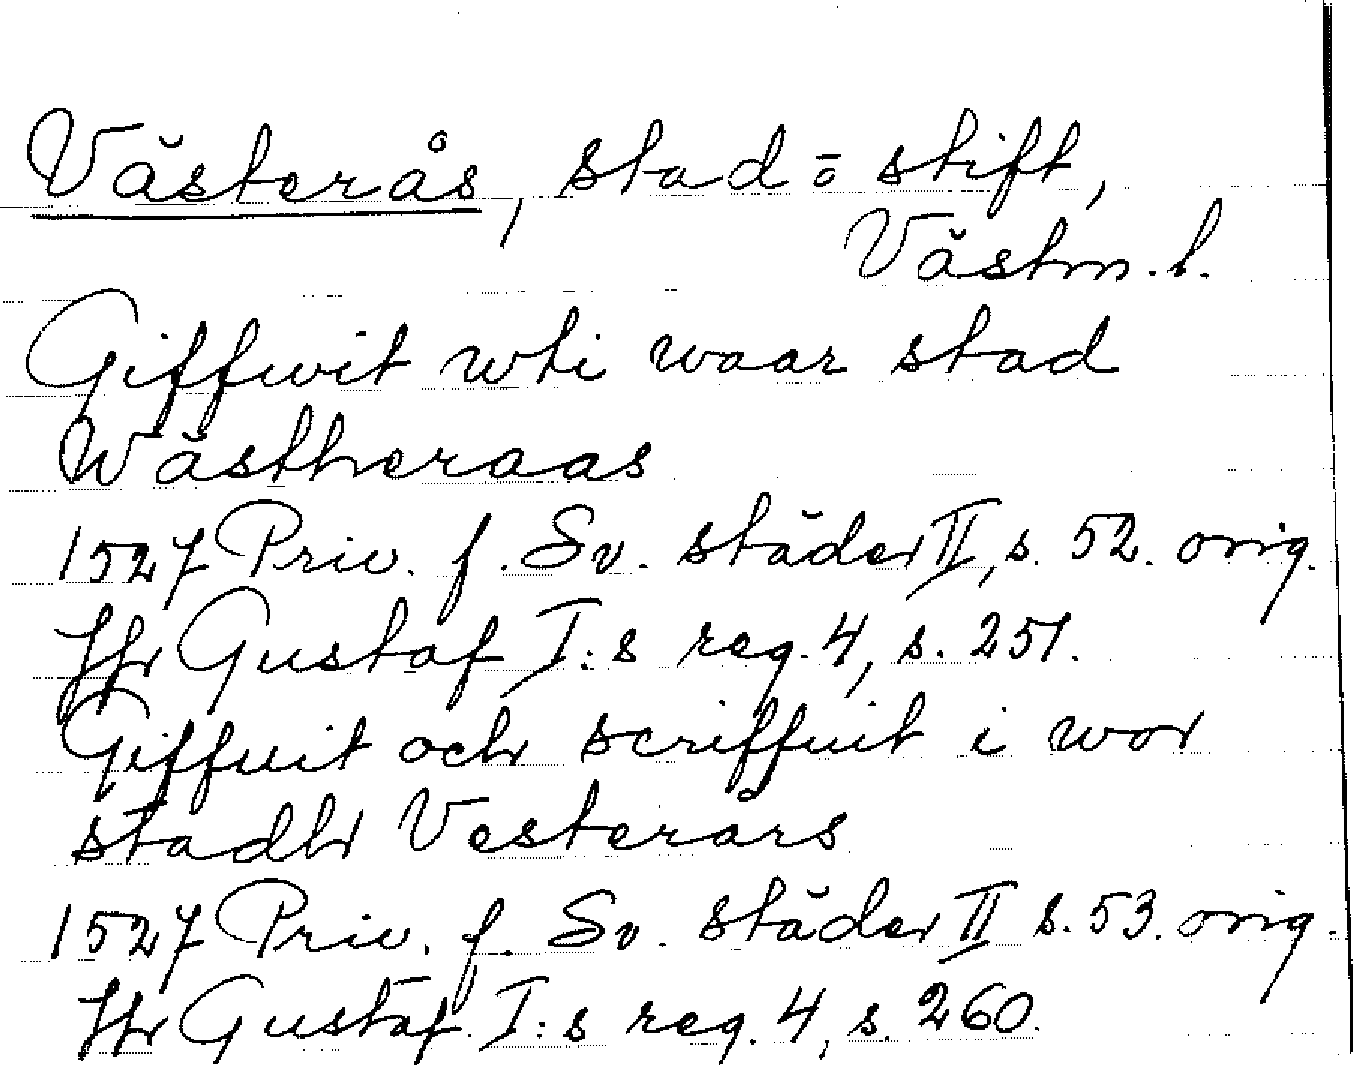 Västerås, stad o stift,
Västm. l.
Giffwit wti waar stad
Wästheraas
1527 Priv. f. Sv. städer II, s. 52. orig.
Jfr Gustaf I:s reg. 4, s. 251.
Giffuit och scriffuit i wor
stadh Vesterårs
1527 Priv. f. Sv. städer II s. 53. orig.
Jfr Gustaf I:s reg. 4, s. 260.